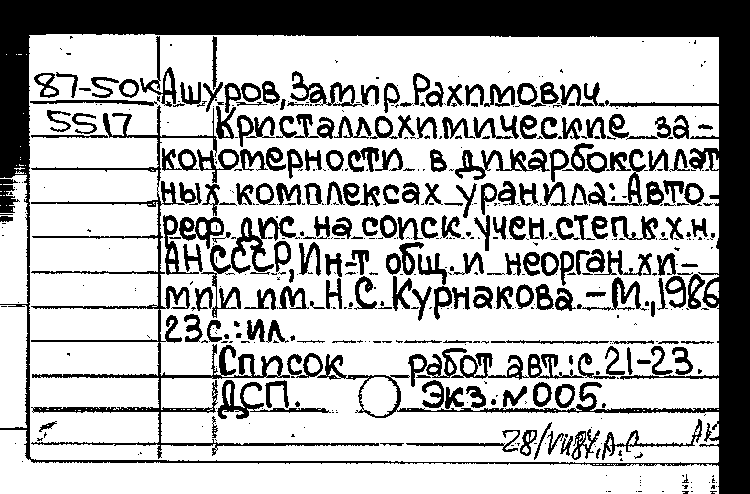 87-50к Ашуров, Замир Рахимович.
5517 Кристаллохимические за-
кономерности в дикарбоксилат
ных комплексах уранила: Авто-
реф. дис. на соиск. учен. степ. к.х.н.
АН СССР, Ин-т общ. и неорган. хи-
мии им. Н.С. Курнакова. — М., 1986
23 с.: ил.
Список работ авт.: с. 21-23.
ДСП. Экз. № 005.